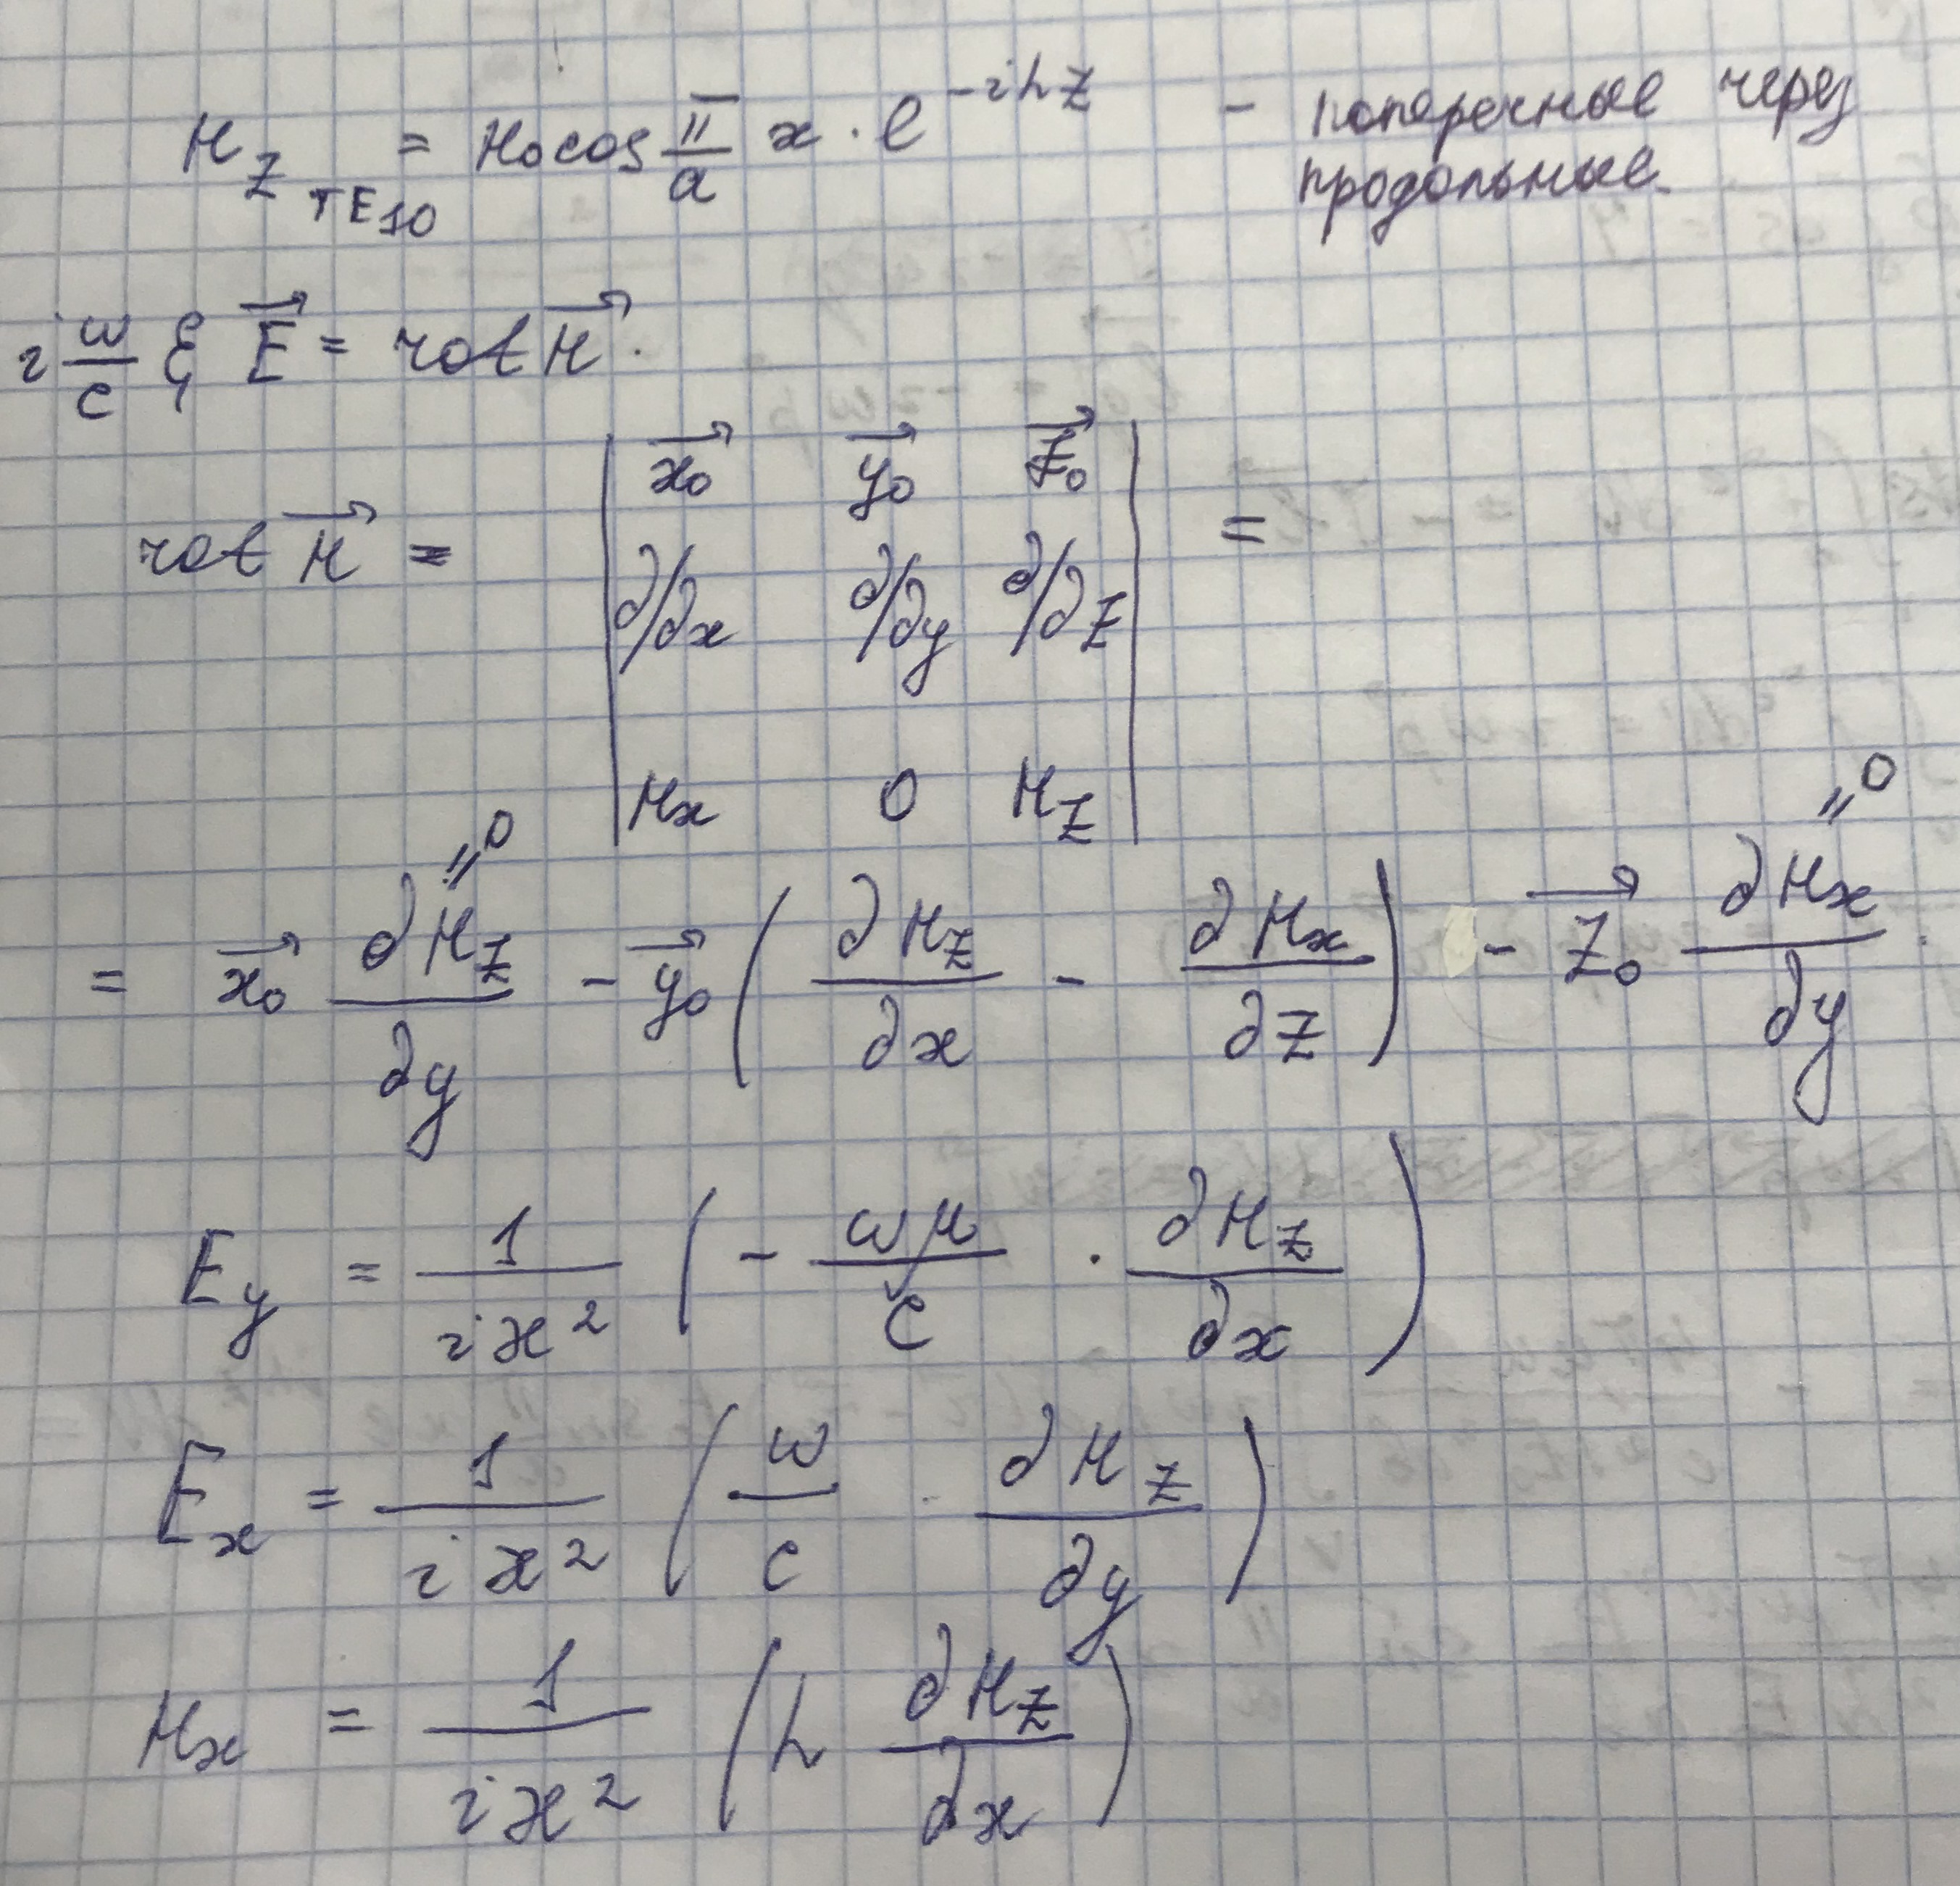 H_z TE10 = H₀cos π/a x · e^{-ihz} - поперечные через
продольные.
i ω/c ε E⃗ = rot H⃗.
x⃗₀ y⃗₀ z⃗₀
rot H⃗ = | ∂/∂x ∂/∂y ∂/∂z | =
Hx 0 Hz
= x⃗₀ ∂Hz/∂y (=0) - y⃗₀ ( ∂Hz/∂x - ∂Hx/∂z ) - z⃗₀ ∂Hx/∂y (=0).
Ey = 1/(iæ²) ( - ωμ/c · ∂Hz/∂x )
Ex = 1/(iæ²) ( ω/c · ∂Hz/∂y )
Hx = 1/(iæ²) ( h ∂Hz/∂x )